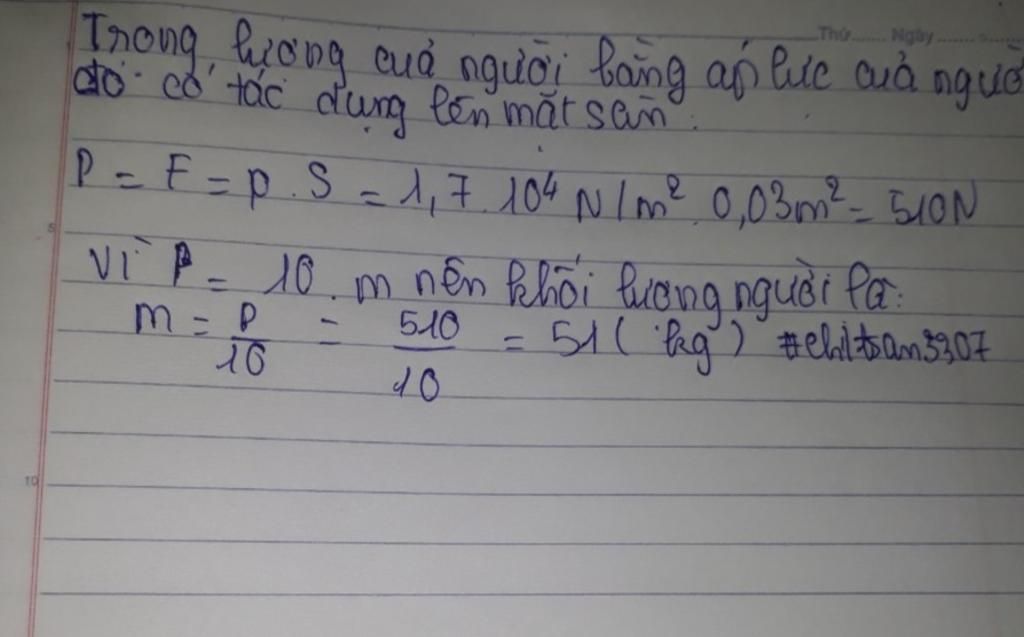 Thứ...... Ngày.......
Trọng lượng của người bằng áp lực của người
đó có tác dụng lên mặt sàn.
P = F = p . S = 1,7 . 10⁴ N/m² . 0,03m² = 510N
5
Vì P = 10 . m nên khối lượng người là:
m = P/10 = 510/10 = 51 ( kg ) #chiltsan3307
10